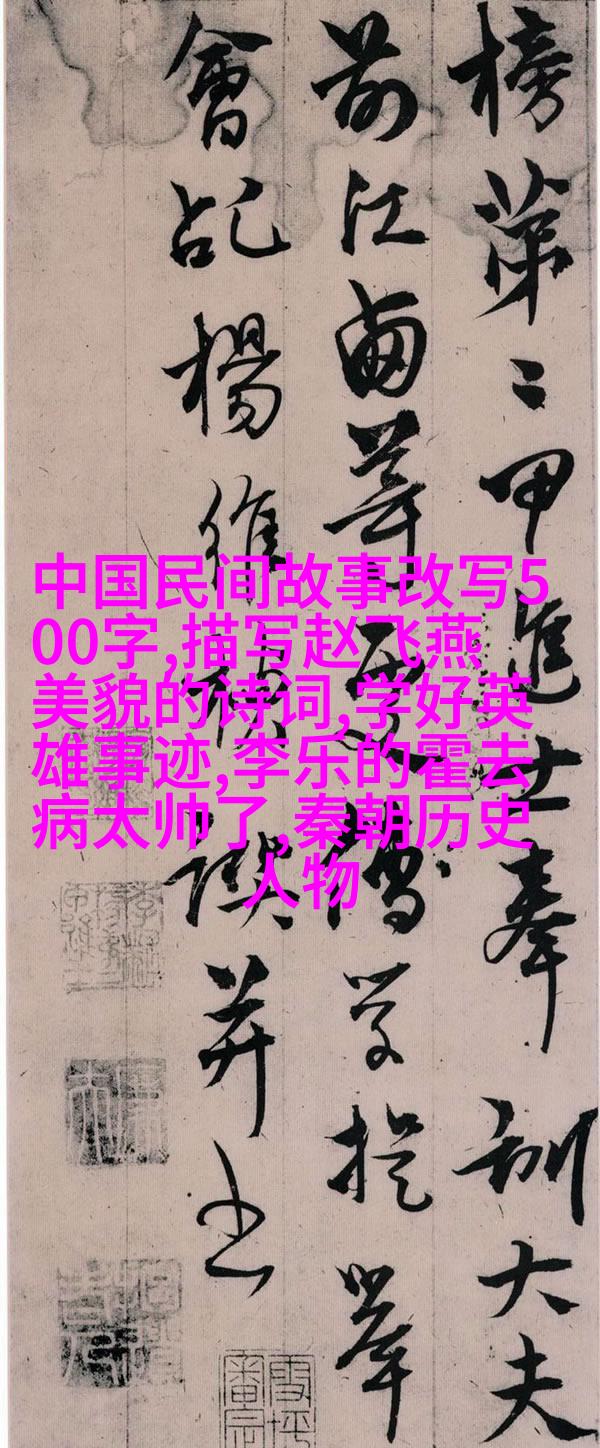 榜第二甲進士奉訓大夫
前江西等處儒學提舉
會稽楊維禎譔并書
中国民间故事改写5
00字,描写赵飞燕
美貌的诗词,学好英
雄事迹,李乐的霍去
病太帅了,秦朝历史
人物